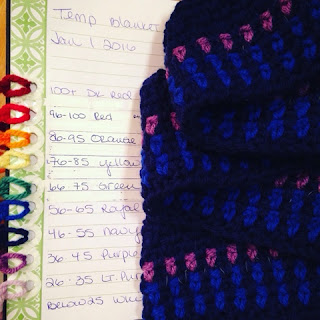 Temp Blanket
Jan 1 2016
100+ Dk Red
96-100 Red
86-95 Orange
76-85 Yellow
66-75 Green
56-65 Royal
46-55 Navy
36-45 Purple
26-35 Lt. Purple
Below 25